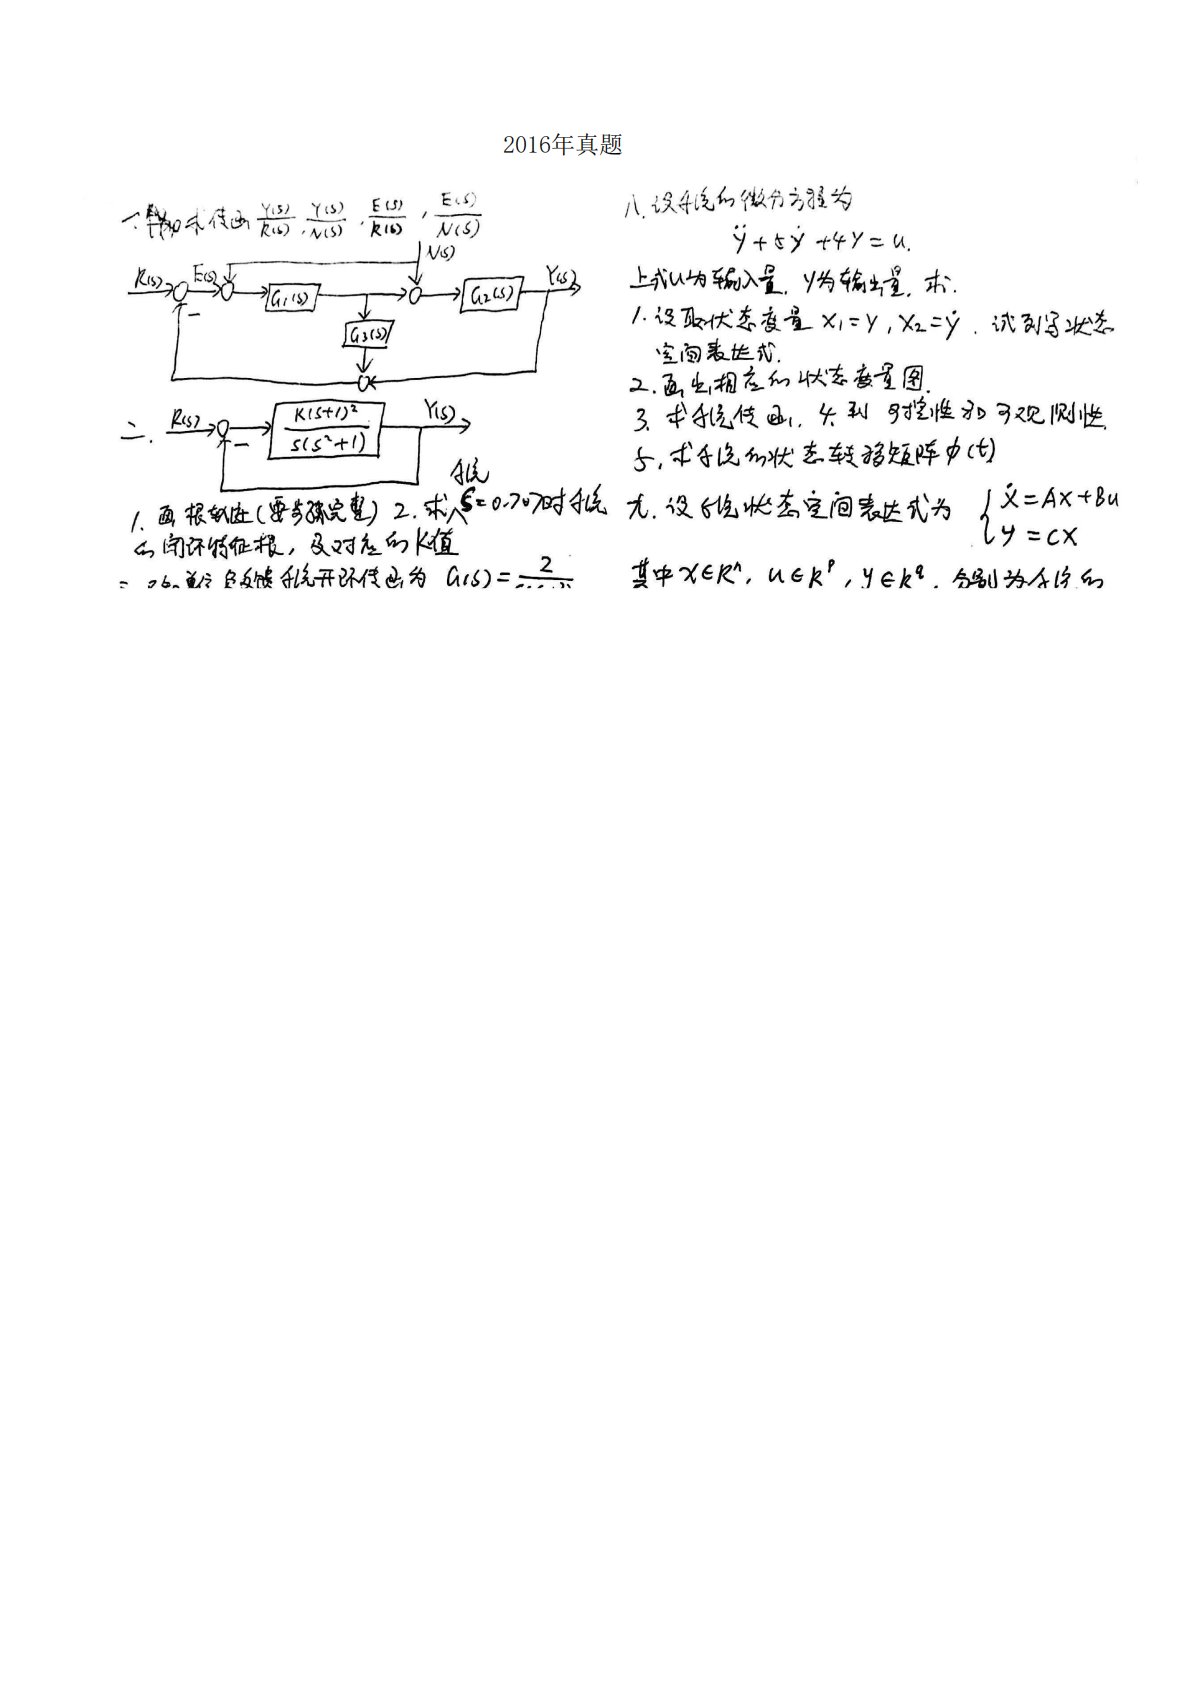 2016年真题
一. 求传函 Y(s)/R(s), Y(s)/N(s), E(s)/R(s), E(s)/N(s)
N(s)
R(s) E(s) G1(s) G2(s) Y(s)
−
G3(s)
二. R(s) K(s+1)²/s(s²+1) Y(s)
−
系统
1. 画根轨迹(要步骤完整) 2. 求∧ξ=0.707时系统
的闭环特征根, 及对应的K值
负反馈系统开环传函为 G(s)=2/
八. 设系统的微分方程为
ÿ+5ẏ+4y=u.
上式u为输入量, y为输出量, 求:
1. 设取状态变量 x1=y, x2=ẏ. 试列写状态
空间表达式.
2. 画出相应的状态变量图.
3. 求系统传函. 4. 判 可控性和可观测性.
5. 求系统的状态转移矩阵φ(t)
九. 设系统状态空间表达式为 { ẋ=Ax+Bu
y=cx
其中 x∈Rⁿ, u∈Rᵖ, y∈R^q, 分别为系统的